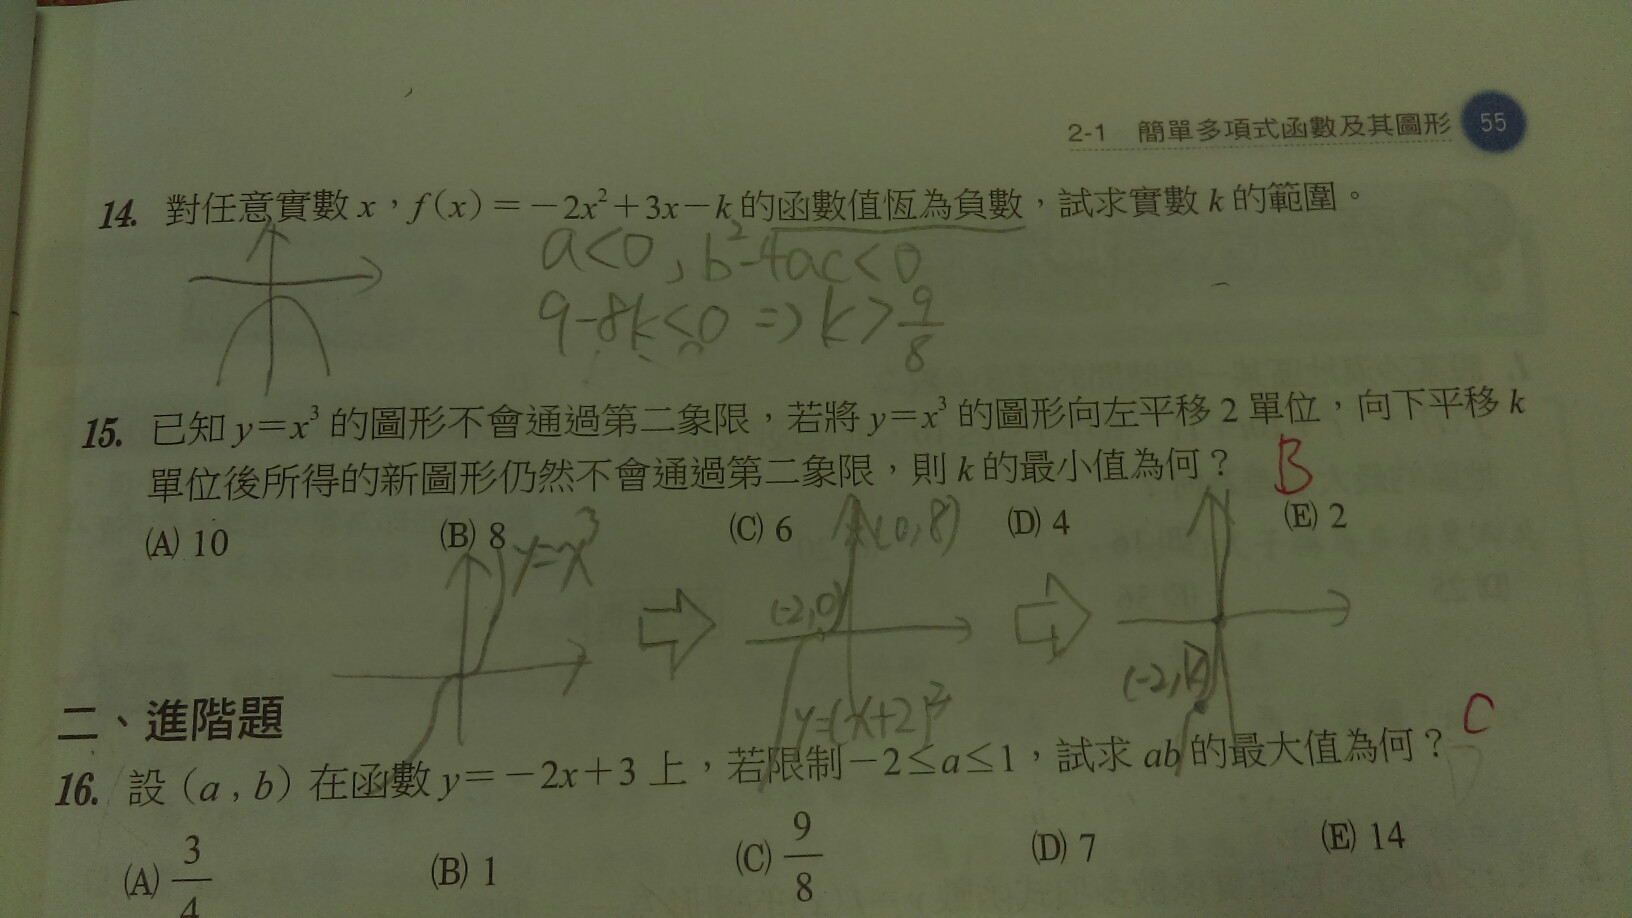 2-1 簡單多項式函數及其圖形 55
14. 對任意實數 x，f(x)＝－2x²＋3x－k 的函數值恆為負數，試求實數 k 的範圍。
a<0, b²-4ac<0
9-8k<0 ⇒ k>9/8
15. 已知 y＝x³ 的圖形不會通過第二象限，若將 y＝x³ 的圖形向左平移 2 單位，向下平移 k
單位後所得的新圖形仍然不會通過第二象限，則 k 的最小值為何？ B
(A) 10 (B) 8 (C) 6 (D) 4 (E) 2
y=x³
(0,8)
(-2,0)
y=(x+2)³
二、進階題
16. 設（a , b）在函數 y＝－2x＋3 上，若限制－2≤a≤1，試求 ab 的最大值為何？ C
(A) 3/4 (B) 1 (C) 9/8 (D) 7 (E) 14